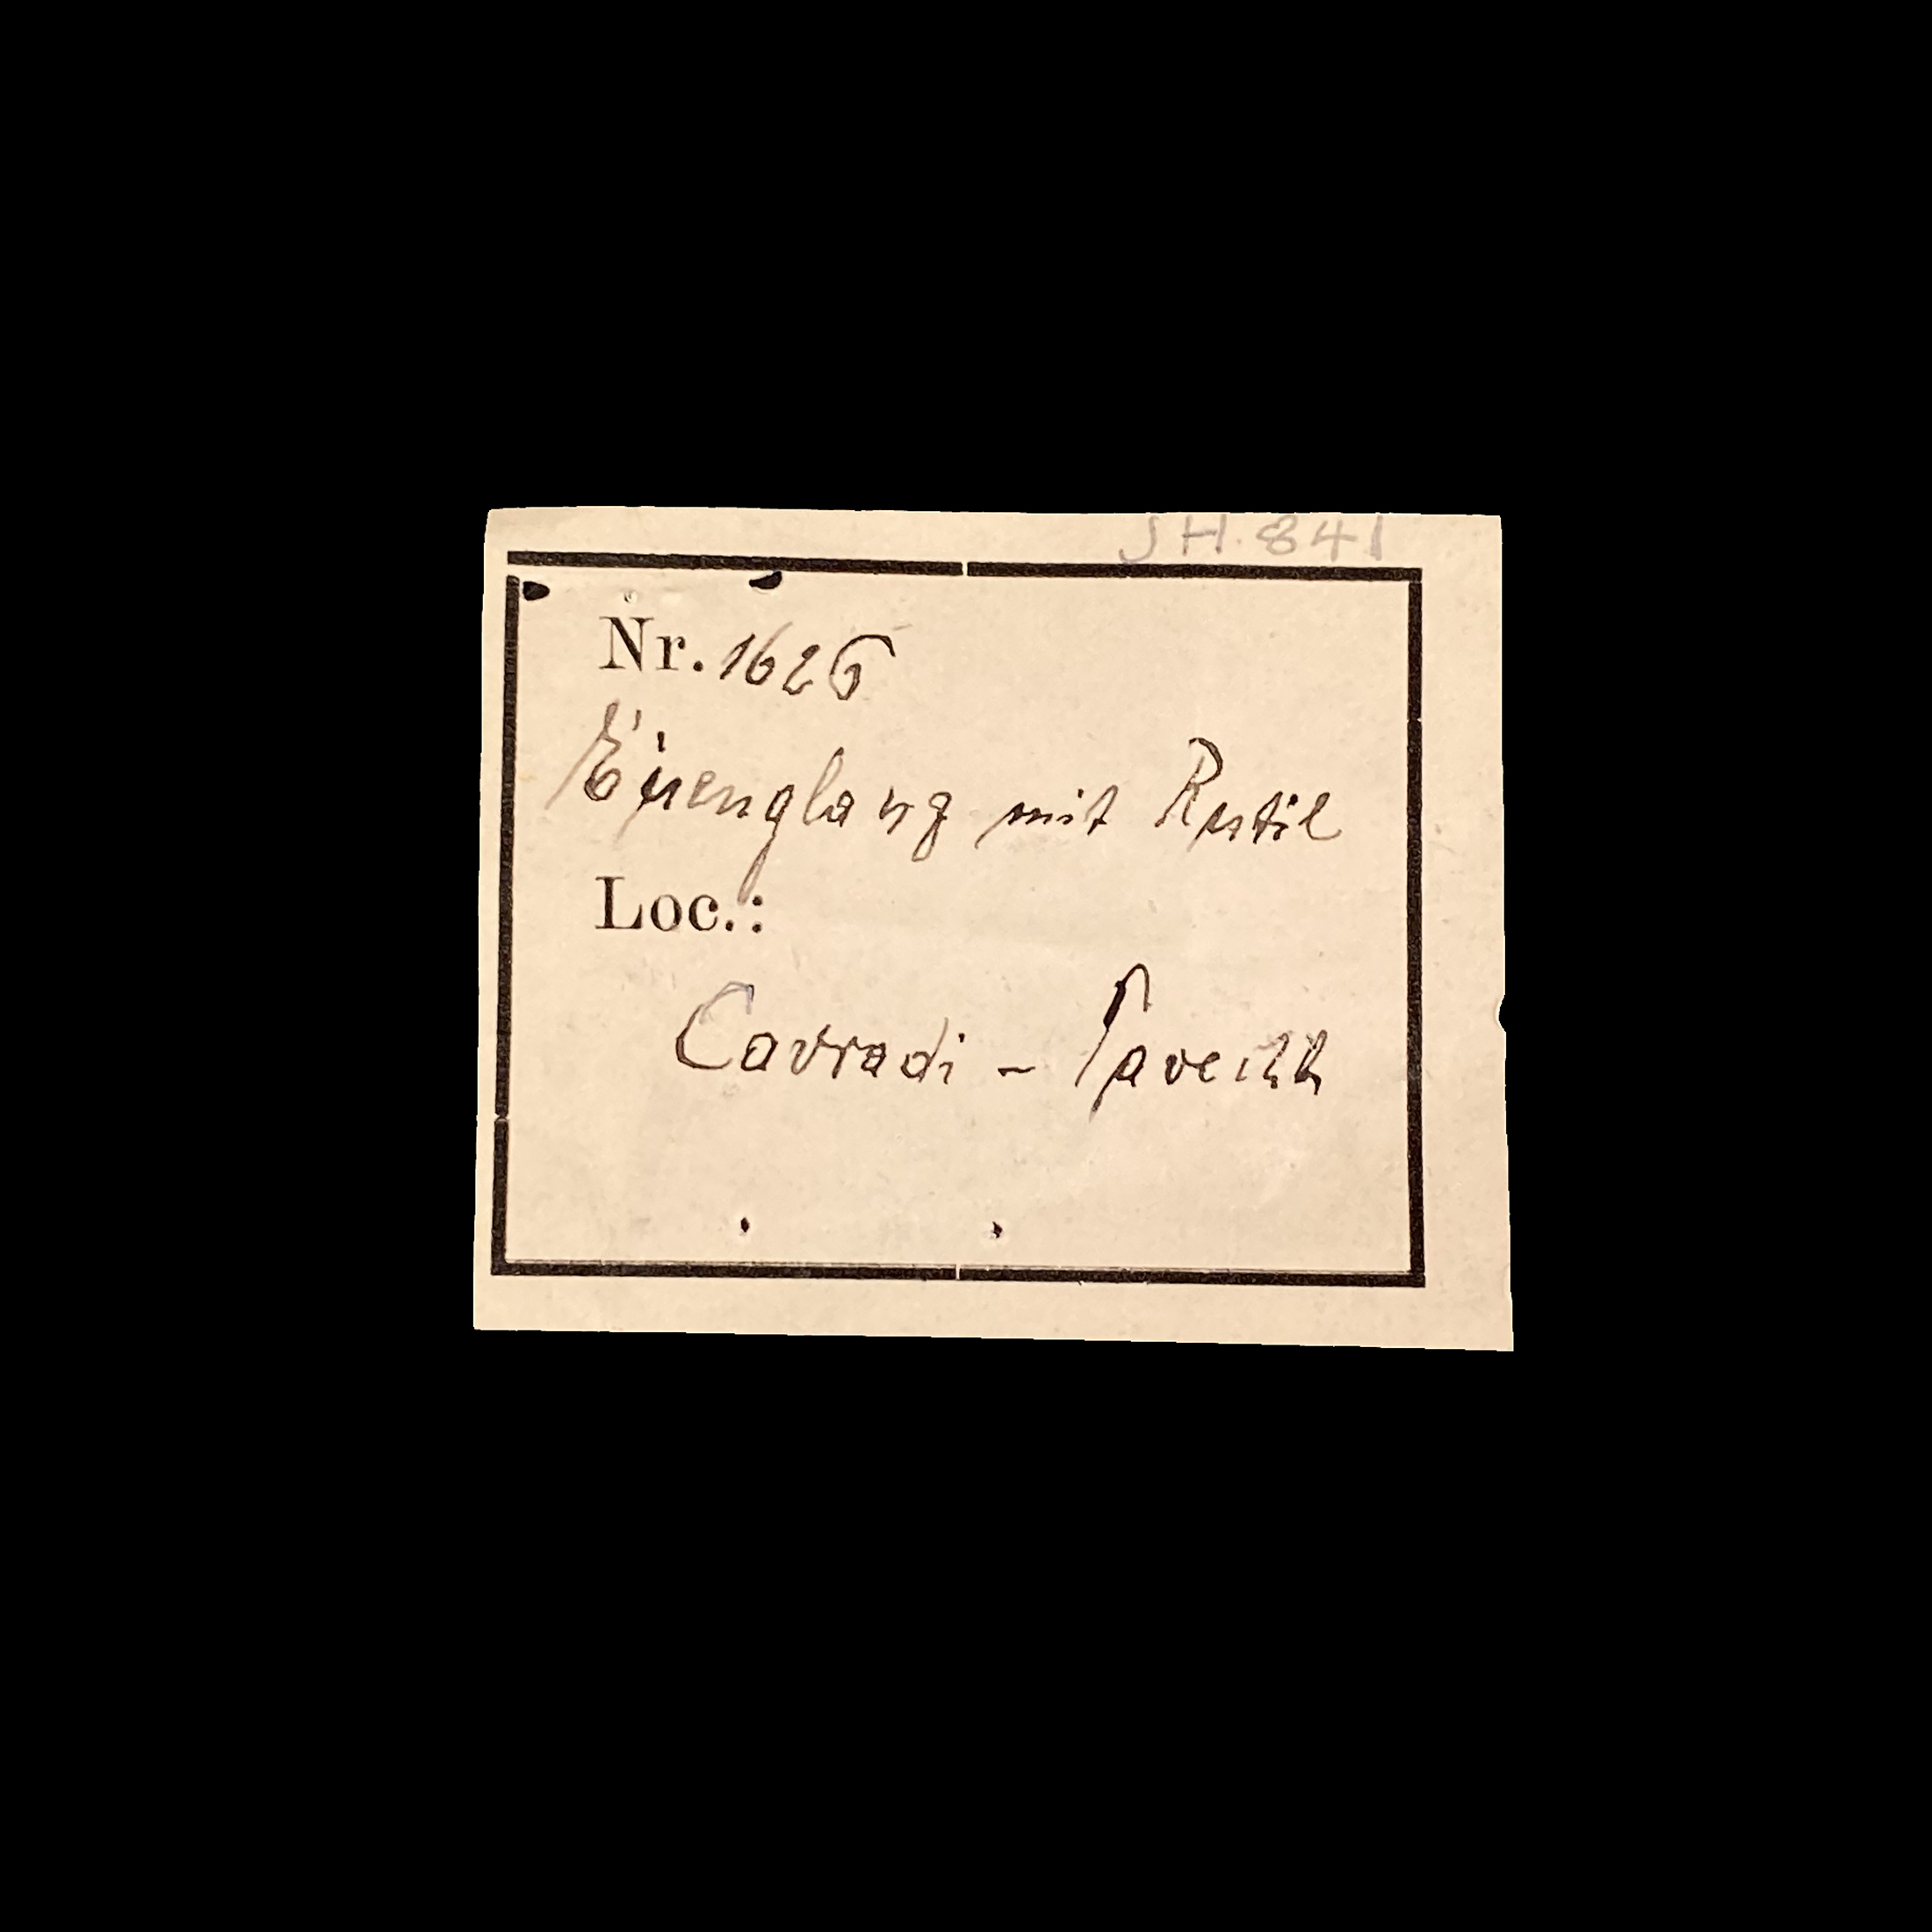 JH.841
Nr. 1626
Eisenglanz mit Rutil
Loc.:
Cavradi - Tavetsch